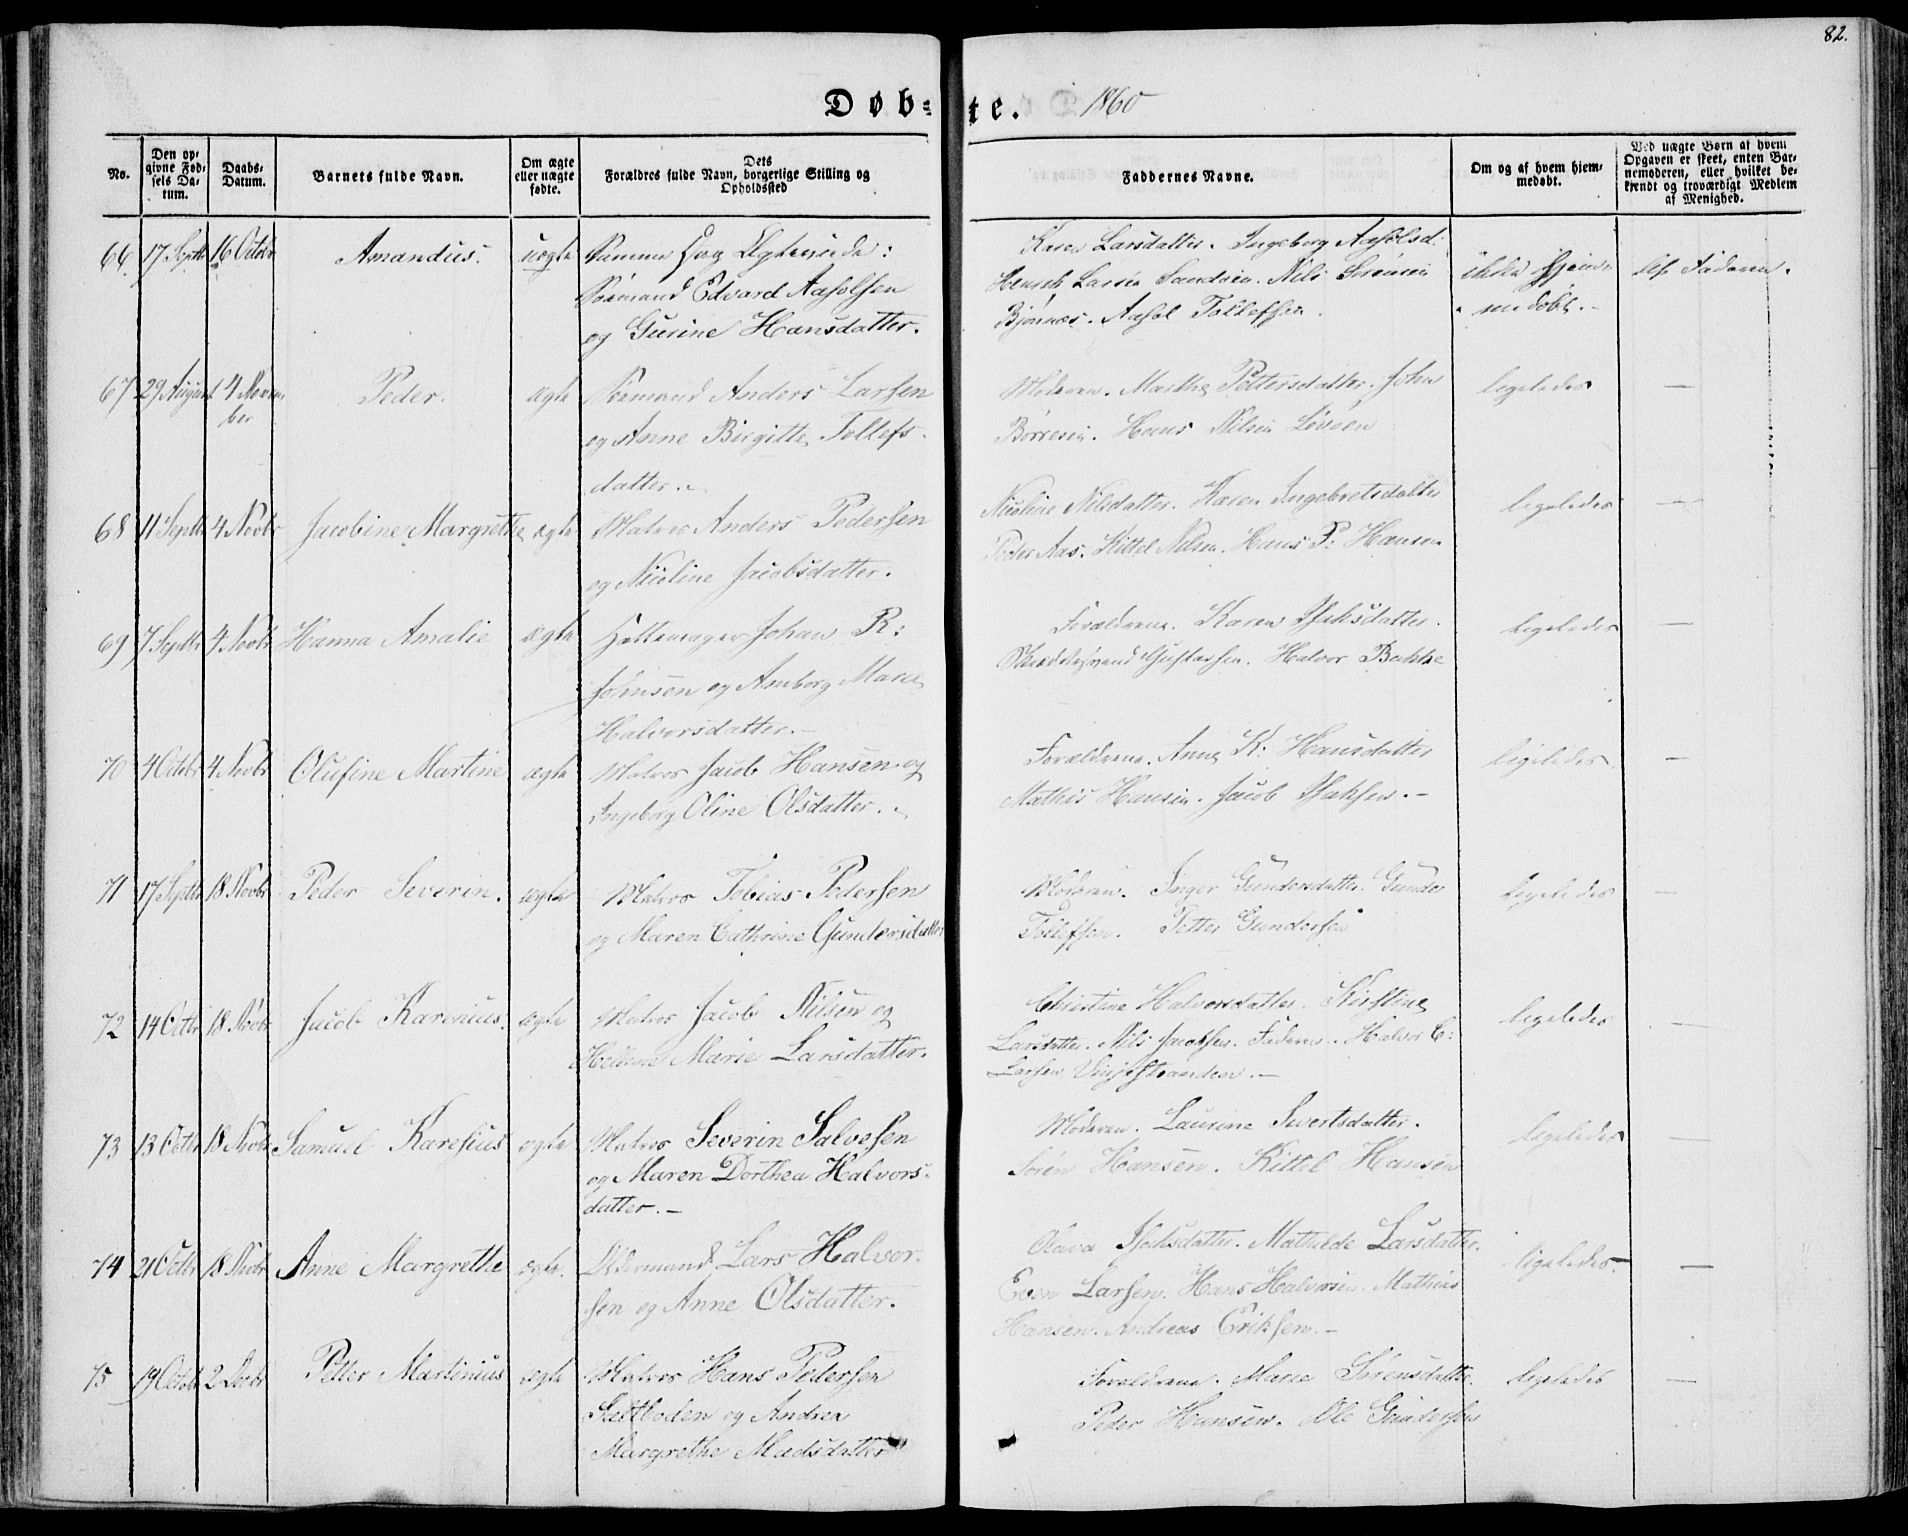 82.
Døb=te. 1860
No.
Den opgivne Fødsels Datum.
Daabs-Datum.
Barnets fulde Navn.
Om ægte eller uægte fødte.
Dets Forældres fulde Navn, borgerlige Stilling og Opholdssted
Faddernes Navne.
Om og af hvem hjemmedøbt.
Ved uægte Børn af hvem Opgaven er skeet, enten Barnemoderen, eller hvilket bekjendt og troværdigt Medlem af Menighed.
66 17 Septb 16 Octobr Amandus. uægte
Sømand Edvard Aasolsen
og Gurine Hansdatter.
Karen Larsdatter. Ingeborg Aasolsd:
Henrik Larsen Sandøen. Nils Sørensen
Bjønnes. Aasol Tollefsen.
ikke hjemmedøbt.-
af Faderen.
67 29 August 4 November Peder. ægte
Sømand Anders Larsen
og Anne Birgitte Tollefs-
datter.
Moderen. Marthe Pettersdatter. John
Børresen. Hans Nilsen Løvøen
ligeledes —
68 11 Septb 4 Novbr Jacobine Margrethe ægte
Matros Anders Pedersen
og Nicoline Jacobsdatter.
Nicoline Nilsdatter. Karen Ingebretsdatter
Peder Aas. Kittel Nilsen. Hans P: Hansen
ligeledes —
69 7 Septbr 4 Novbr Hanna Amalie ægte
Johan R:
Johnsen og Amborg Marie
Halvorsdatter.-
Forældrene. Karen Isaksdatter.
Gustavsen. Halvor Bakke
ligeledes —
70 4 Octobr 4 Novbr Olufine Martine ægte
Matros Jacob Hansen og
Ingeborg Oline Olsdatter.
Forældrene. Anne K: Hansdatter
Mathis Hansen. Jacob Isaksen.-
ligeledes. —
71 17 Septbr 18 Novbr Peder Severin. ægte
Matros Tobias Pedersen
og Maren Cathrine Gundersdatter
Moderen. Inger Gundersdatter. Gunder
Tollefsen. Petter Gundersen
ligeledes —
72 14 Octbr 18 Novbr Jacob Karenius. ægte
Matros Jacob Nilsen og
Hellene Marie Larsdatter.
Christine Halvorsdatter. Kirstine
Larsdatter. Nils Jacobsen. Faderen. Halvor C:
Larsen
ligeledes —
73 13 Octbr 18 Novbr Samuel Karesius ægte
Matros Severin Salvesen
og Maren Dorthea Halvors-
datter.-
Moderen. Laurine Sivertsdatter.
Søren Hansen. Kittel Hansen
ligeledes —
74 21 Octbr 18 Novbr Anne Margrethe ægte.
Oldermand Lars Halvor-
sen og Anne Olsdatter.
Olava Isaksdatter. Mathilde Larsdatter.
Even Larsen. Hans Halvorsen. Mathias
Hansen. Andreas Eriksen.-
ligeledes. —
75 19 Octobr 2 Decbr Petter Martinius ægte
Matros Hans Pedersen
Saltboden og Andrea
Margrethe Madsdatter
Forældrene. Maren Sørensdatter.
Peder Hansen. Ole Gundersen
ligeledes —